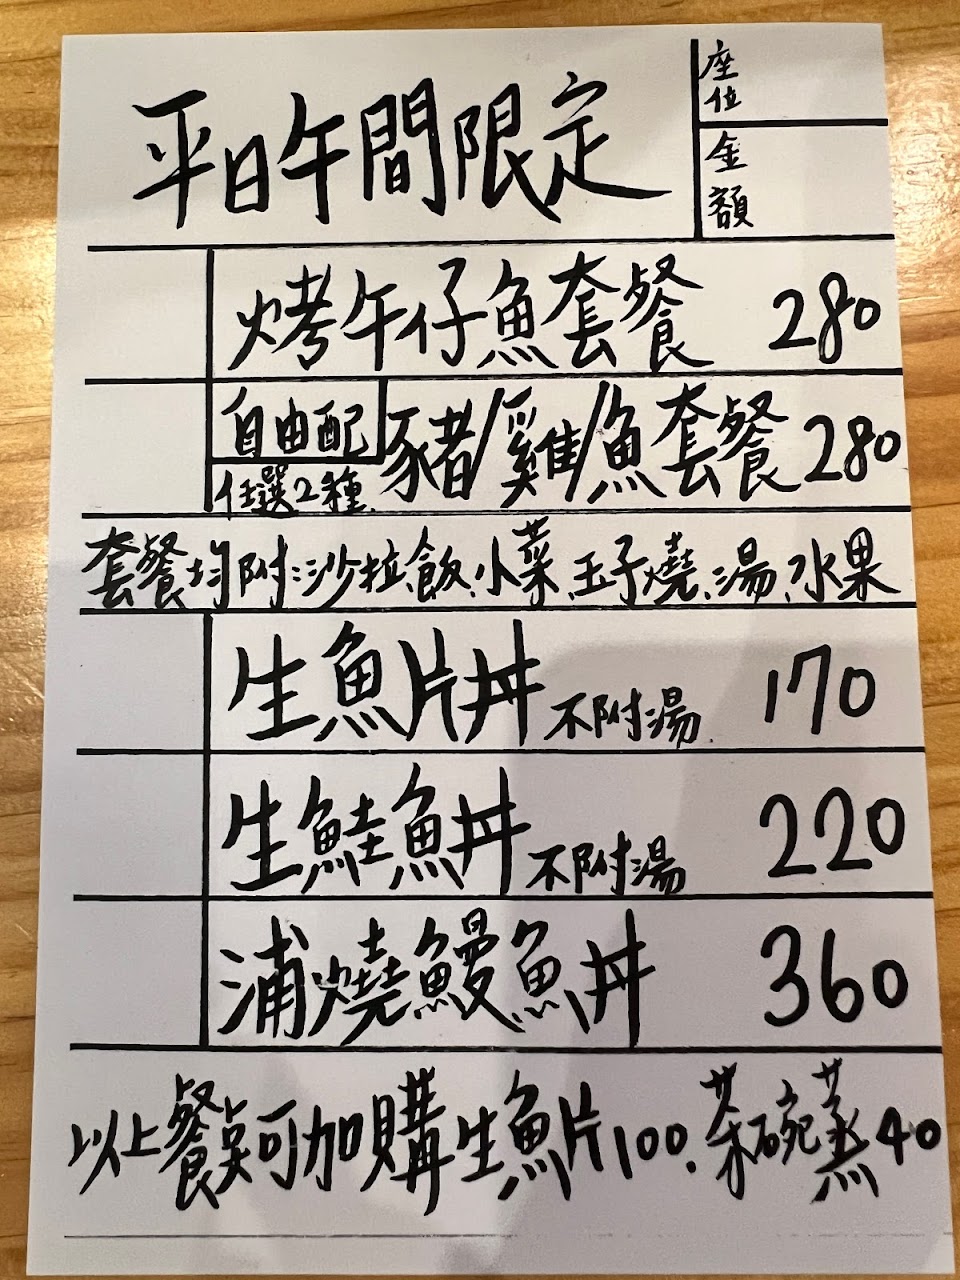 平日午間限定
座位
金額
烤午仔魚套餐 280
自由配 豬/雞/魚套餐 280
任選2種
套餐均附:沙拉、飯、小菜、玉子燒、湯、水果
生魚片丼 不附湯 170
生鮭魚丼 不附湯 220
浦燒鰻魚丼 360
以上餐點可加購生魚片100、茶碗蒸40